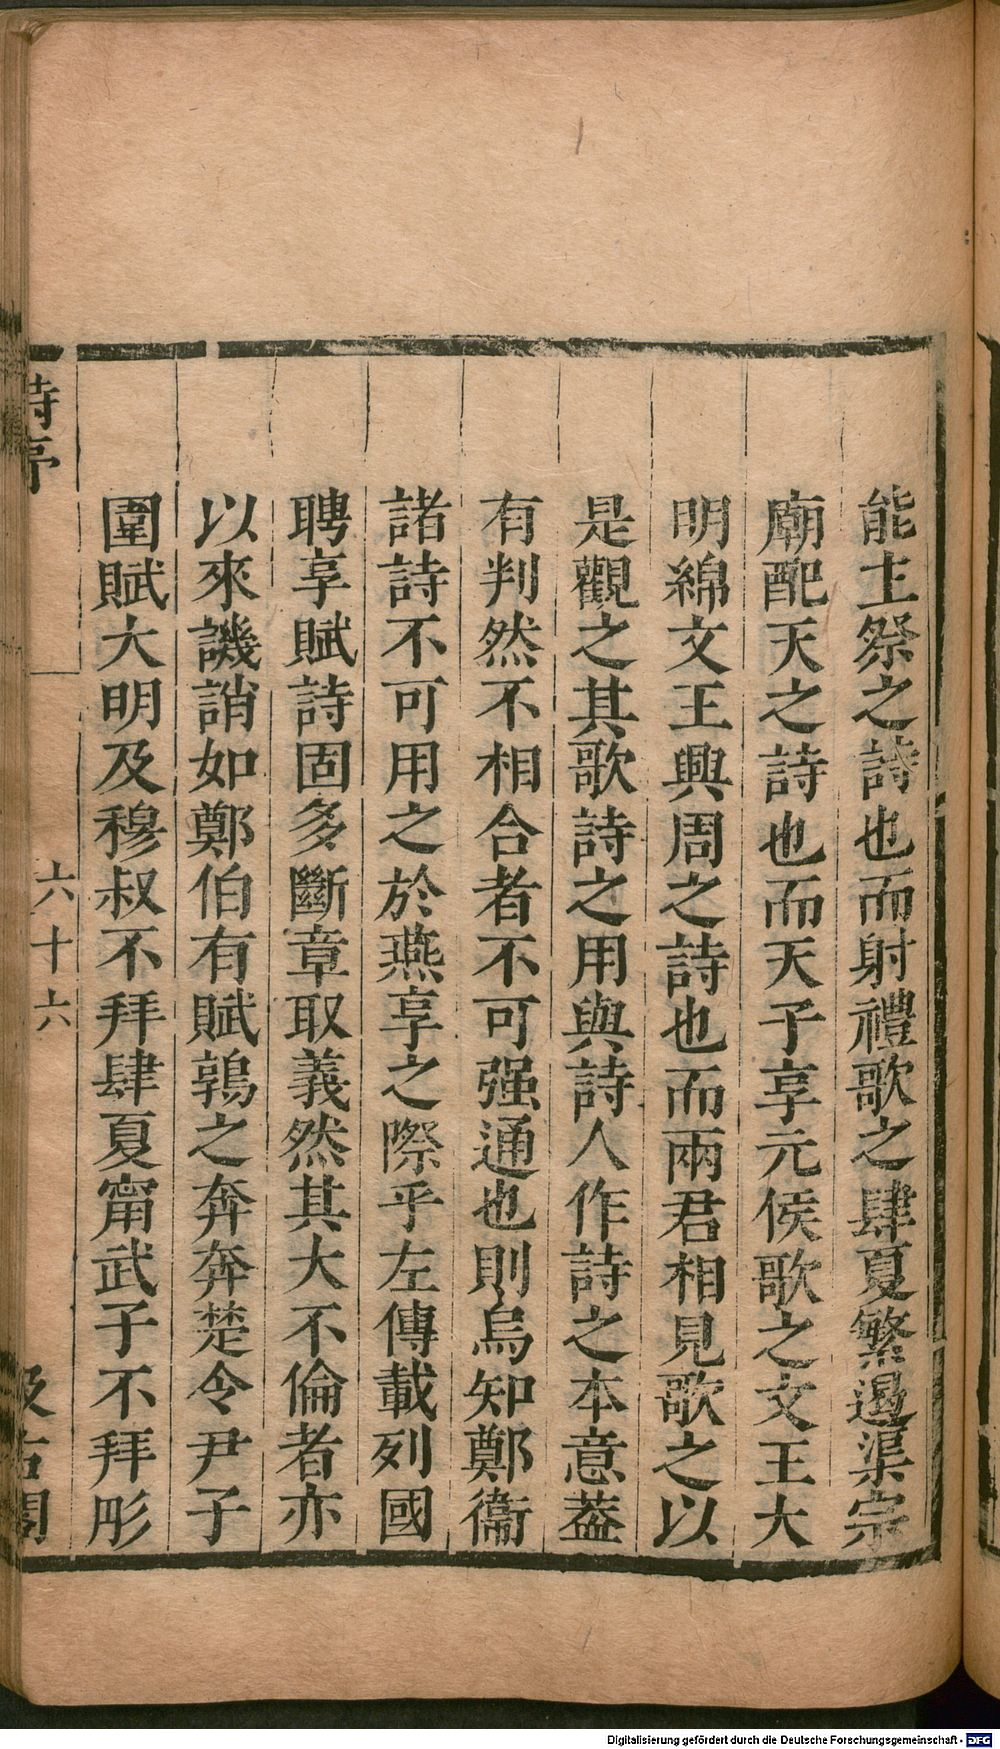 能主祭之詩也而射禮歌之肆夏繁遏渠宗
廟配天之詩也而天子享元侯歌之文王大
明綿文王興周之詩也而兩君相見歌之以
是觀之其歌詩之用與詩人作詩之本意葢
有判然不相合者不可强通也則烏知鄭衞
諸詩不可用之於燕享之際乎左傳載列國
聘享賦詩固多斷章取義然其大不倫者亦
以來譏誚如鄭伯有賦鶉之奔奔楚令尹子
圍賦大明及穆叔不拜肆夏甯武子不拜彤
詩序
六十六
汲古閣
Digitalisierung gefördert durch die Deutsche Forschungsgemeinschaft - DFG